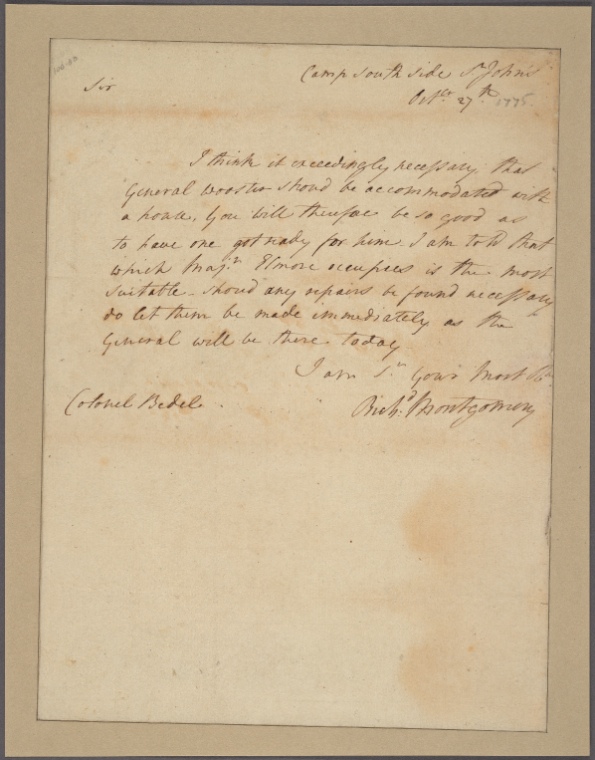 Camp South Side St. John's
Octbr 27th 1775
Sir
I think it exceedingly necessary that
General Wooster shoud be accommodated with
a house. You will therefore be so good as
to have one got ready for him. I am told that
which Majr Elmore occupies is the most
suitable - should any repairs be found necessary
do let them be made immediately as the
General will be there today
I am Sr Your Most
Colonel Bedel.
Richd Montgomery